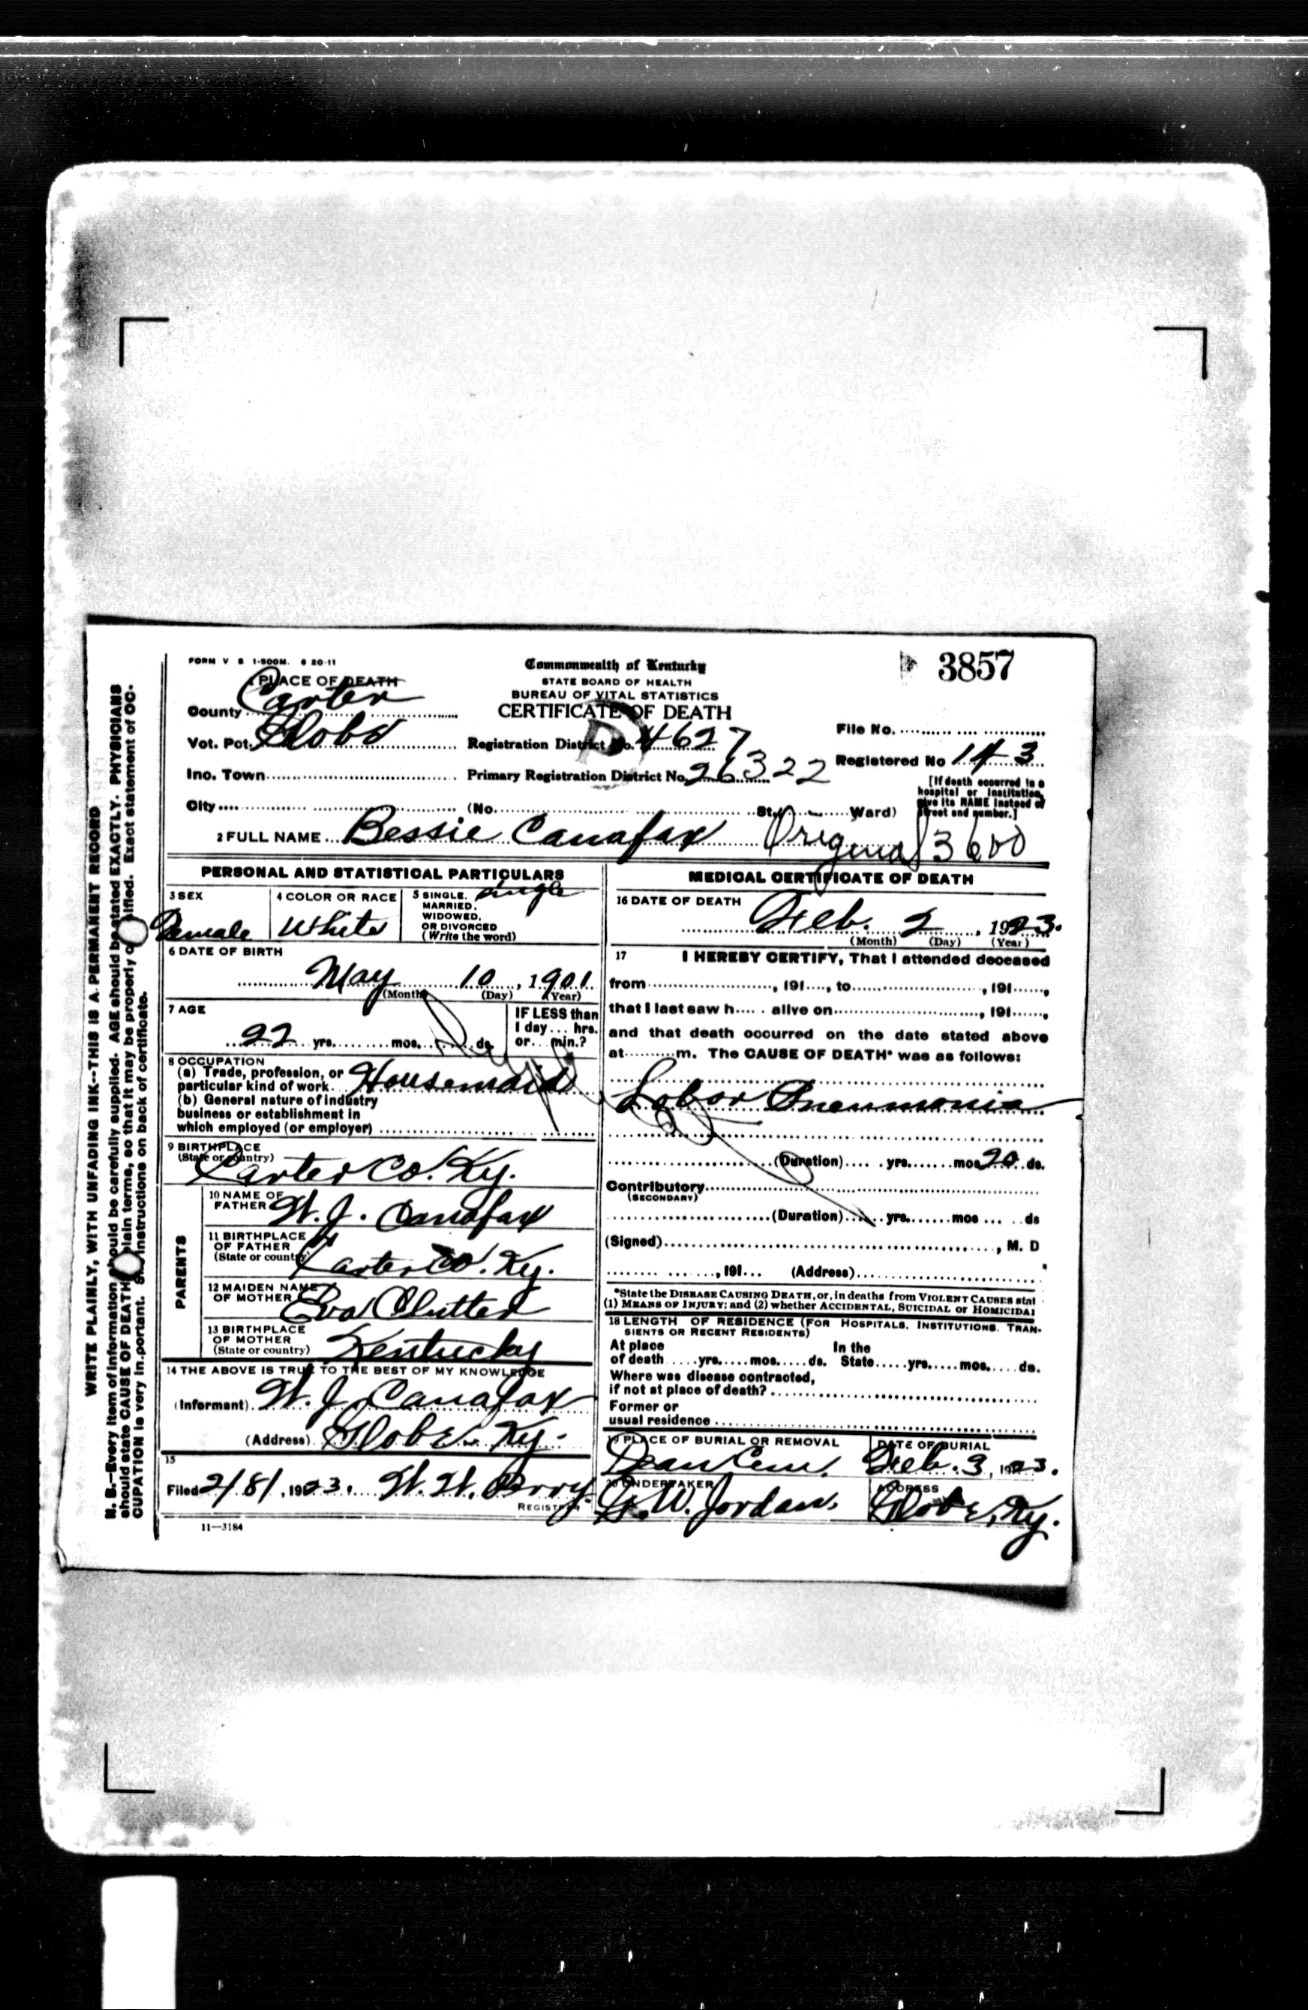 FORM V S 1-500M. 6 20-11
Commonwealth of Kentucky
3857
1 PLACE OF DEATH
STATE BOARD OF HEALTH
BUREAU OF VITAL STATISTICS
County Carter
CERTIFICATE OF DEATH
D
File No.
Vot. Pct. Globe
Registration District No. 4627
Registered No 143
Inc. Town
Primary Registration District No. 26322
[If death occurred in a hospital or institution, give its NAME instead of street and number.]
City
(No. St., Ward)
2 FULL NAME Bessie Canafax
Original 3600
PERSONAL AND STATISTICAL PARTICULARS
3 SEX
Female
4 COLOR OR RACE
White
5 SINGLE, MARRIED, WIDOWED, OR DIVORCED (Write the word)
single
6 DATE OF BIRTH
May 10, 1901
(Month) (Day) (Year)
7 AGE
22 yrs. mos. ds.
IF LESS than 1 day ... hrs. or ... min.?
8 OCCUPATION
(a) Trade, profession, or particular kind of work Housemaid
(b) General nature of industry business or establishment in which employed (or employer)
9 BIRTHPLACE
(State or country)
Carter Co. Ky.
PARENTS
10 NAME OF FATHER W. J. Canafax
11 BIRTHPLACE OF FATHER
(State or country) Carter Co. Ky.
12 MAIDEN NAME OF MOTHER Eva Clutter
13 BIRTHPLACE OF MOTHER
(State or country) Kentucky
14 THE ABOVE IS TRUE TO THE BEST OF MY KNOWLEDGE
(Informant) W. J. Canafax
(Address) Globe Ky.
15
Filed 2/8/, 1923. W. W. Perry
REGISTRAR
11—3184
MEDICAL CERTIFICATE OF DEATH
16 DATE OF DEATH
Feb. 2, 1923.
(Month) (Day) (Year)
17 I HEREBY CERTIFY, That I attended deceased
from , 191 , to , 191 ,
that I last saw h alive on , 191 ,
and that death occurred on the date stated above
at m. The CAUSE OF DEATH* was as follows:
Lobar Pneumonia
(Duration) yrs. mos 20 ds.
Contributory
(SECONDARY)
(Duration) yrs. mos ds
(Signed) , M. D
, 191 (Address)
*State the DISEASE CAUSING DEATH, or, in deaths from VIOLENT CAUSES stat
(1) MEANS OF INJURY; and (2) whether ACCIDENTAL, SUICIDAL or HOMICIDAL
18 LENGTH OF RESIDENCE (FOR HOSPITALS, INSTITUTIONS, TRANSIENTS OR RECENT RESIDENTS)
At place of death yrs. mos. ds.
In the State yrs. mos. ds.
Where was disease contracted, if not at place of death?
Former or usual residence
19 PLACE OF BURIAL OR REMOVAL
Dean Cem.
DATE OF BURIAL
Feb. 3, 1923.
20 UNDERTAKER
G. W. Jordan.
ADDRESS
Globe, Ky.
WRITE PLAINLY, WITH UNFADING INK--THIS IS A PERMANENT RECORD
N. B.--Every item of information should be carefully supplied. AGE should be stated EXACTLY. PHYSICIANS
should state CAUSE OF DEATH plain terms, so that it may be properly classified. Exact statement of OC-
CUPATION is very important. See instructions on back of certificate.